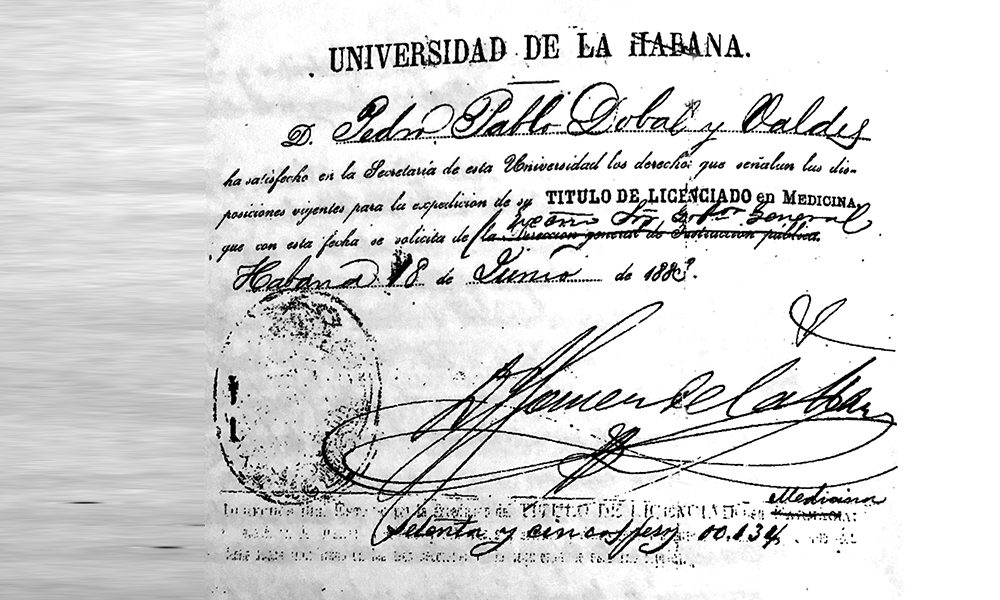 UNIVERSIDAD DE LA HABANA.
D. Pedro Pablo Dobal y Valdés
ha satisfecho en la Secretaría de esta Universidad los derechos que señalan las dis-
posiciones vigentes para la expedicion de su TITULO DE LICENCIADO en MEDICINA,
Excmo Sor. Gobor General
que con esta fecha se solicita de la Direccion general de Instruccion pública.
Habana 18 de Junio de 188
de la
Medicina
TITULO DE LICENCIADO en FARMACIA
Setenta y cinco pesos